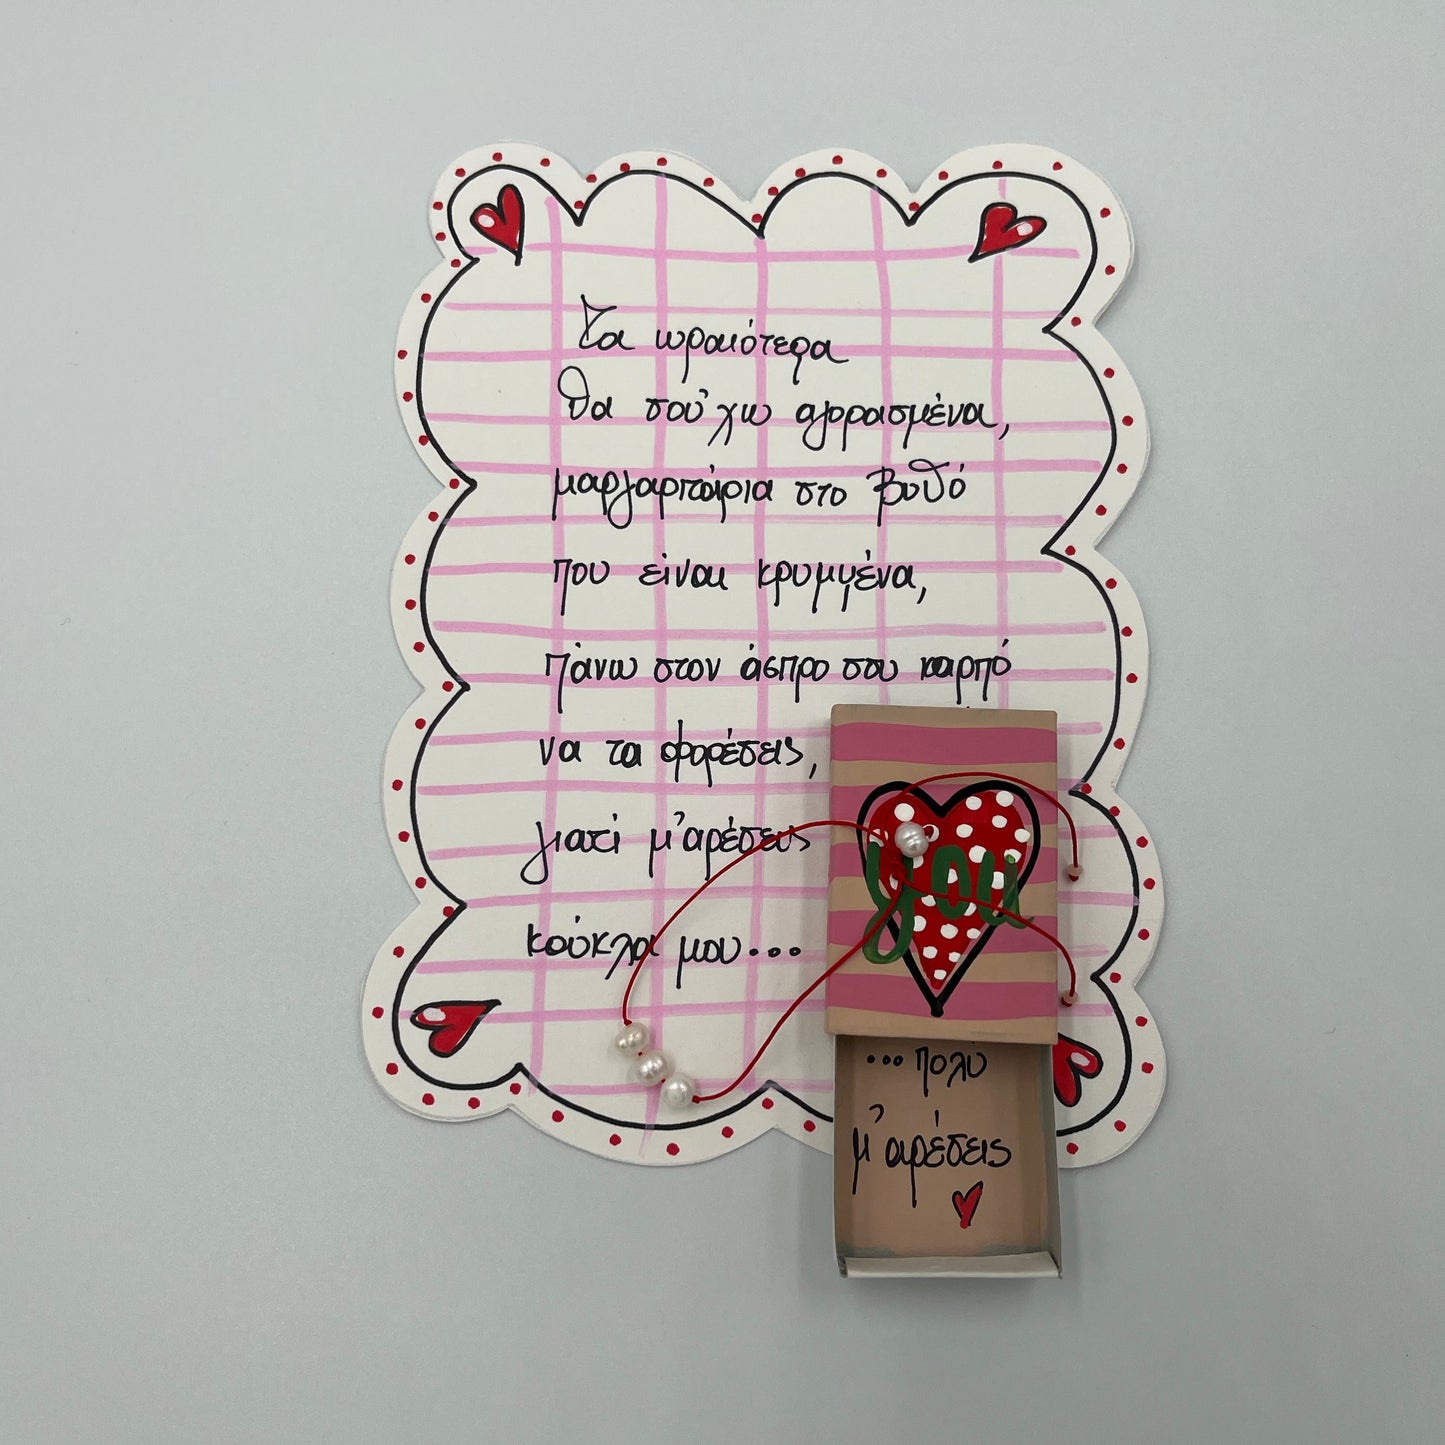 Τα ωραιότερα
θα σού'χω αγορασμένα,
μαργαριτάρια στο βυθό
που είναι κρυμμένα,
πάνω στον άσπρο σου καρπό
να τα φορέσεις,
γιατί μ'αρέσεις
κούκλα μου...
you
...πολύ
μ'αρέσεις